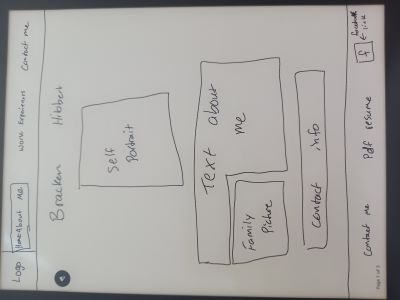 Logo Home About Me Work Experiences Contact me
Bracken Hibbert
Self
Portrait
Text about
me
Family
Picture
Contact info
Contact me Pdf resume f facebook
link
Page 1 of 3